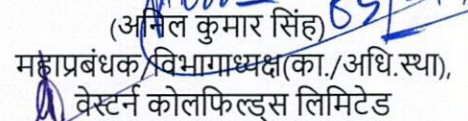 (अनिल कुमार सिंह)
महाप्रबंधक/विभागाध्यक्ष(का./अधि.स्था),
वेस्टर्न कोलफिल्ड्स लिमिटेड